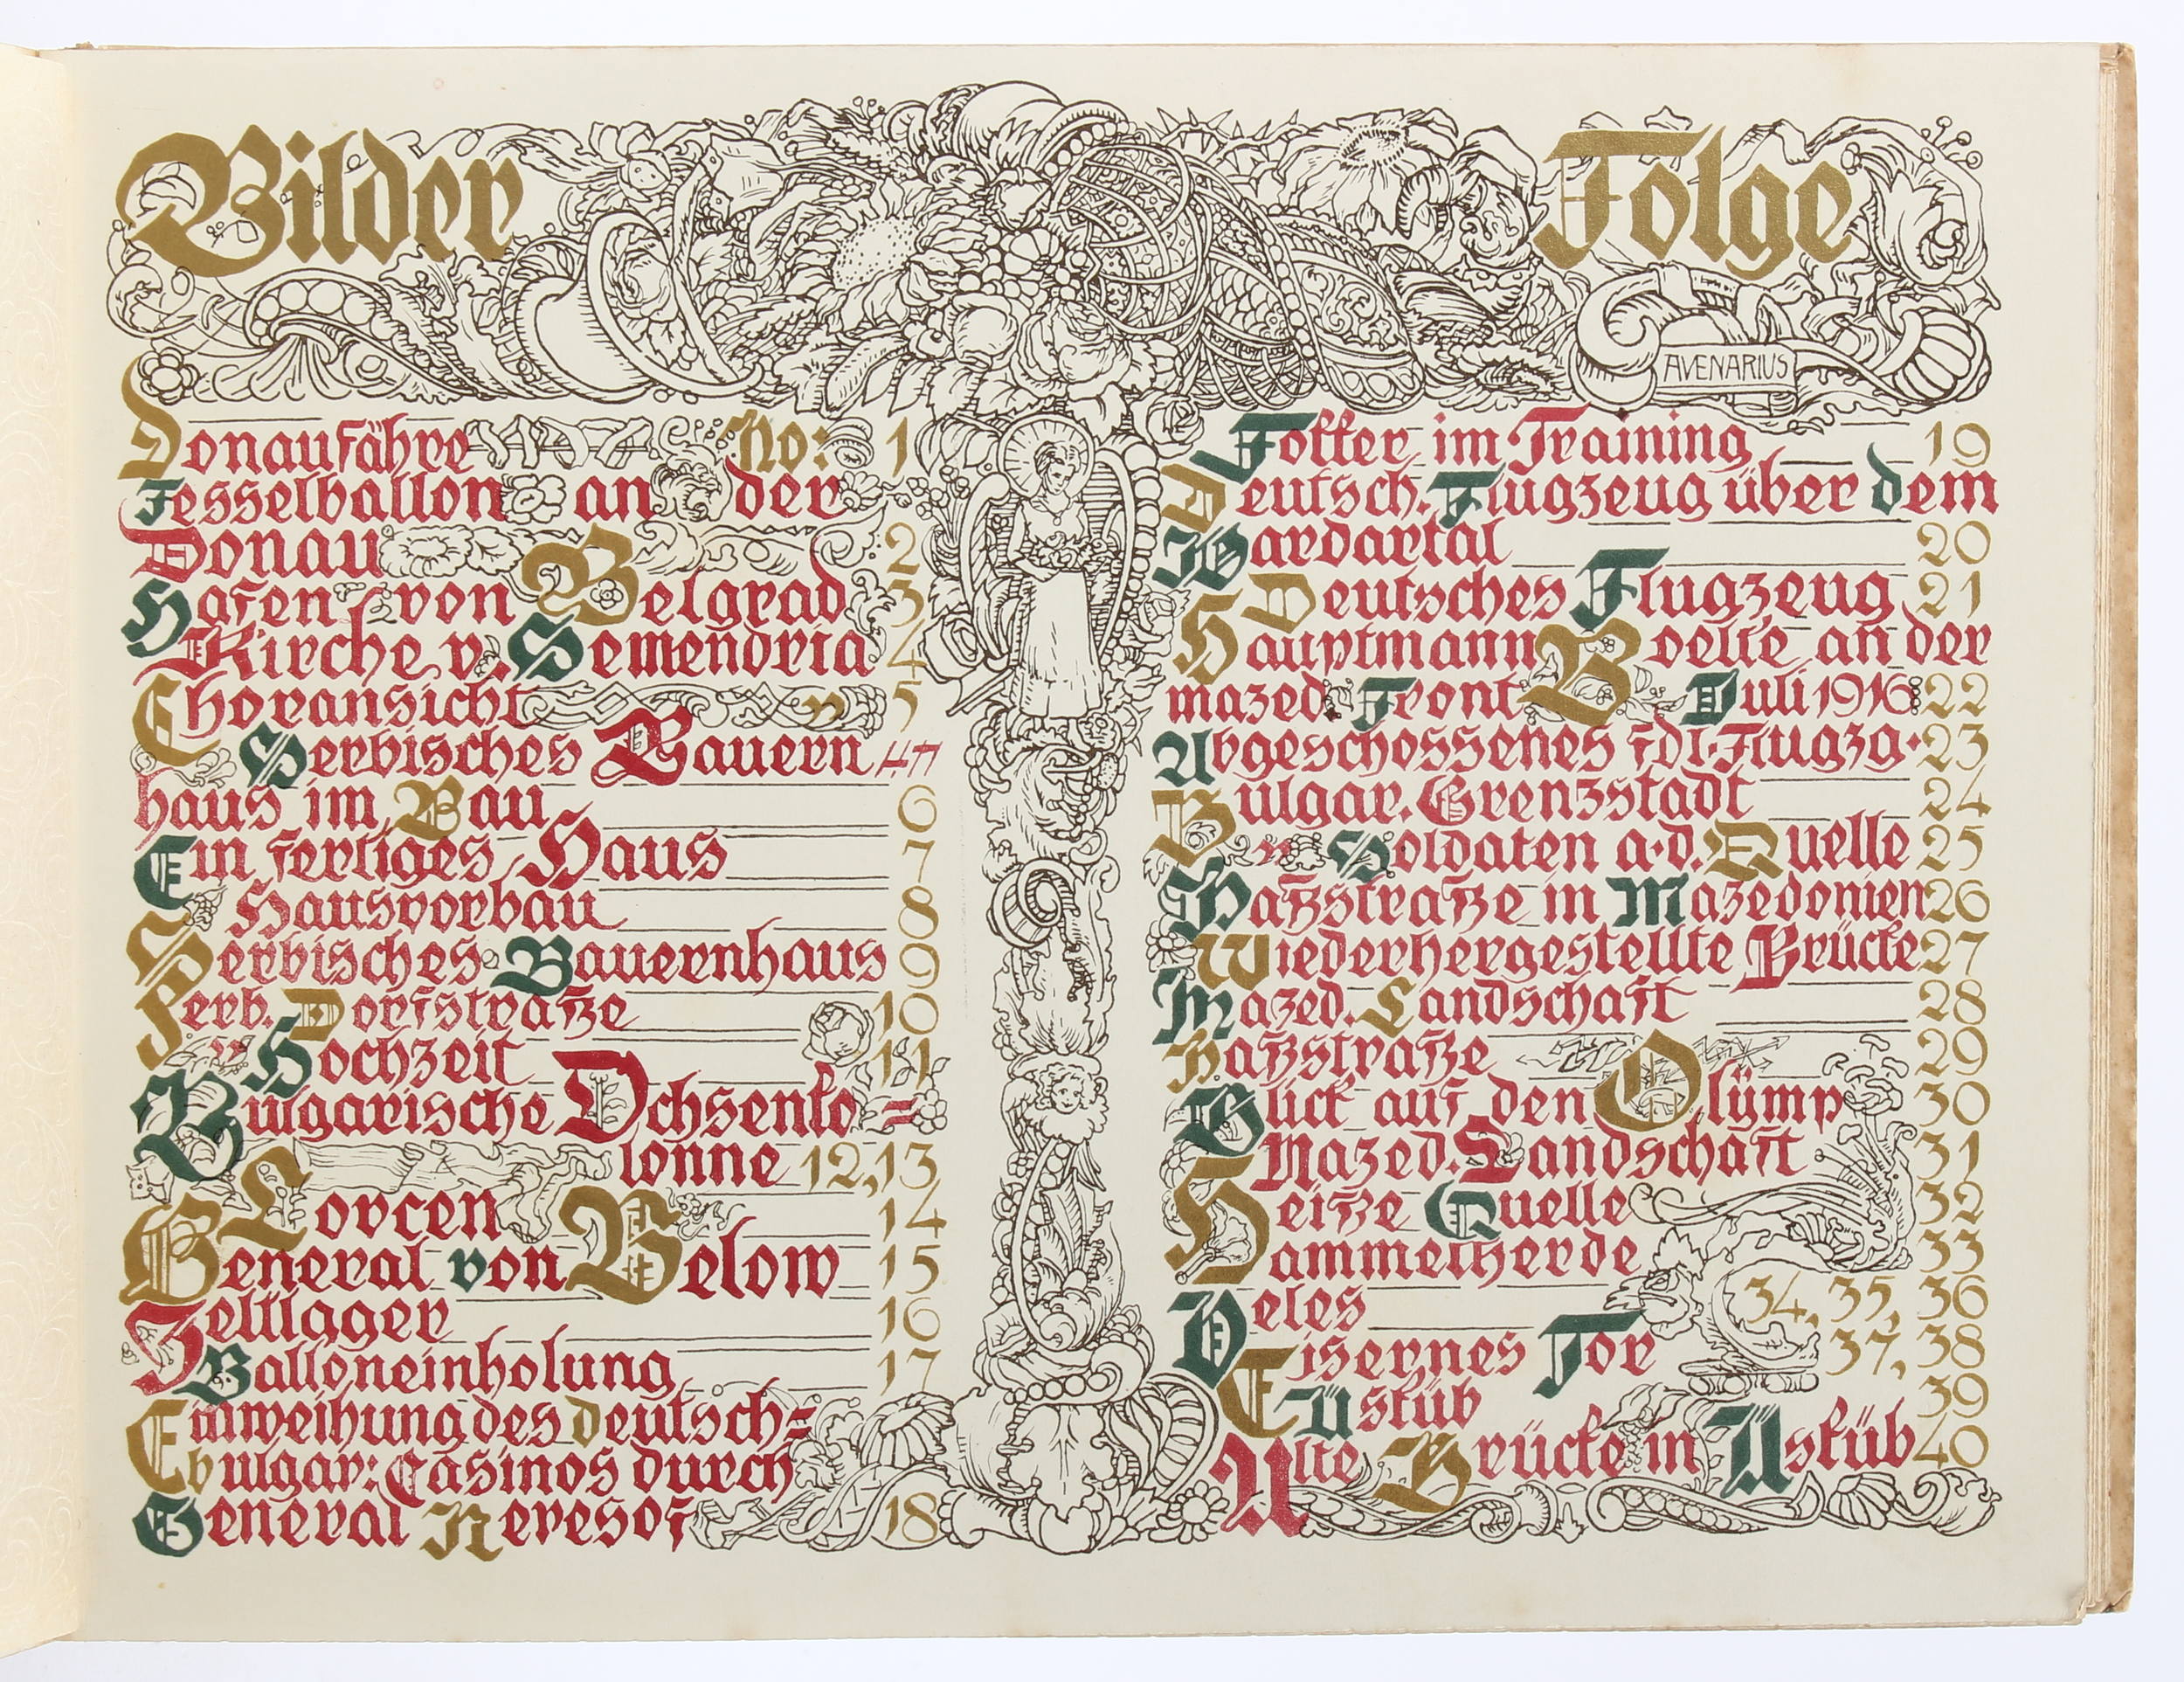 Bilder Folge
AVENARIUS
Donaufähre No: 1
Fesselballon an der
Donau 2
Hafen von Belgrad 3
Kirche v. Semendria 4
Choransicht " 5
Serbisches Bauern
haus im Bau 6
Ein fertiges Haus 7
" Hausvorbau 8
Serbisches Bauernhaus 9
Serb. Dorfstraße 10
" Hochzeit 11
Bulgarische Ochsenko=
lonne 12,13
Lovcen 14
General von Below 15
Zeltlager 16
Balloneinholung 17
Einweihung des deutsch=
bulgar: Casinos durch
General Neresof 18
Fokker im Training 19
Deutsch. Flugzeug über dem
Wardartal 20
Deutsches Flugzeug 21
Hauptmann Boelke an der
mazed. Front Juli 1916 22
Abgeschossenes fdl. Flugzg. 23
Bulgar. Grenzstadt 24
" Soldaten a.d. Quelle 25
Paßstraße in Mazedonien 26
Wiederhergestellte Brücke 27
Mazed. Landschaft 28
Paßstraße 29
Blick auf den Olümp 30
Mazed. Landschaft 31
Heiße Quelle 32
Hammelherde 33
Veles 34, 35, 36
Eisernes Tor 37, 38
Üsküb 39
Alte Brücke in Üsküb 40